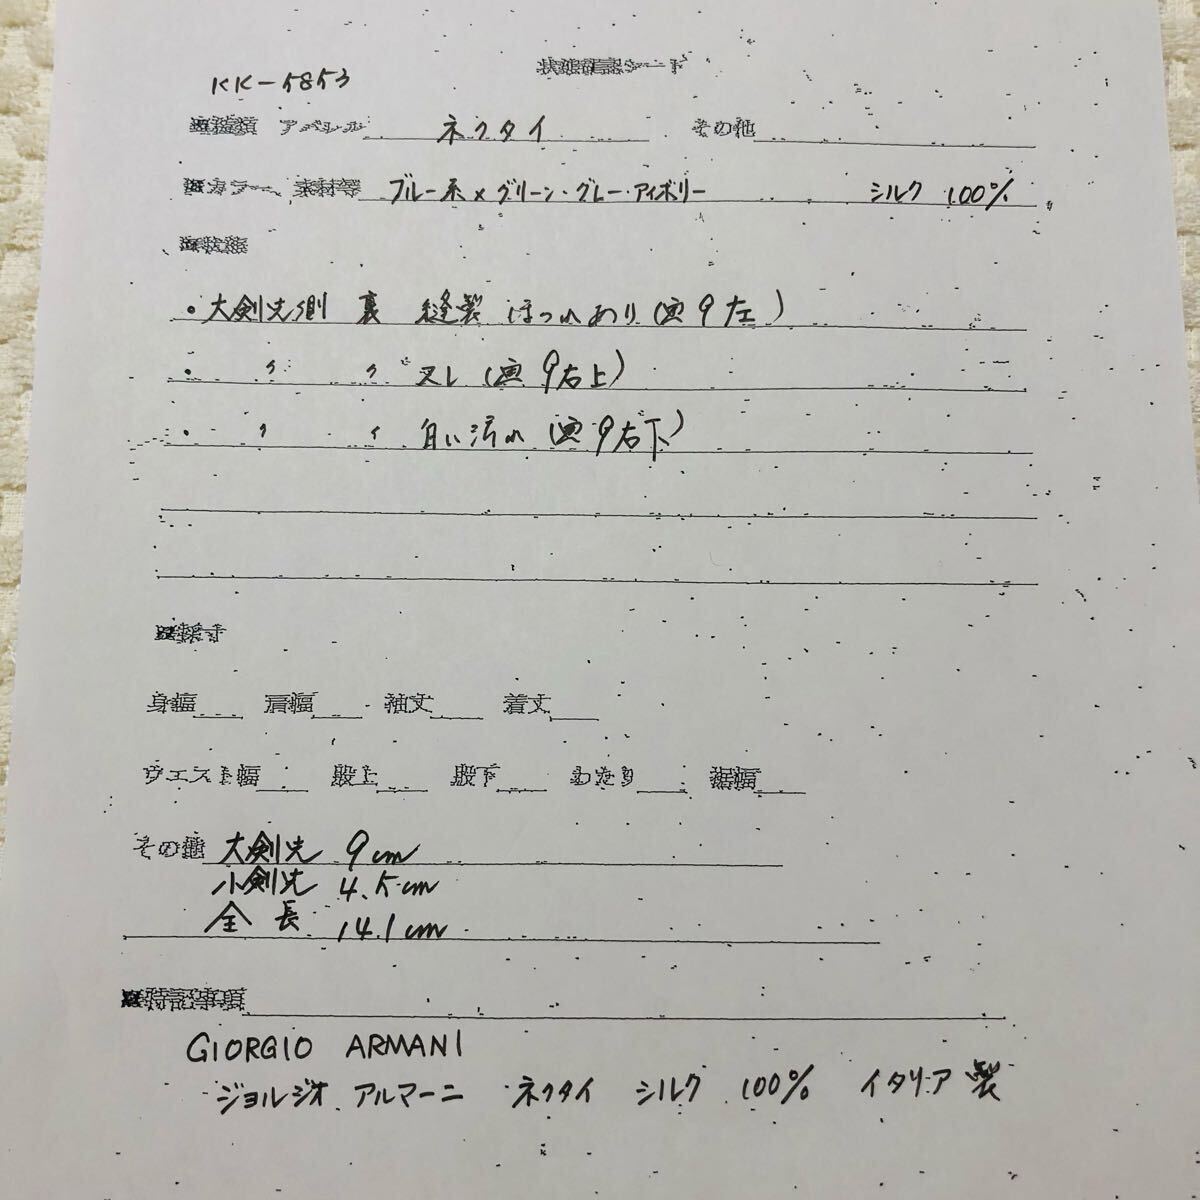 状態確認シート
KK-5853
■種類 アパレル ネクタイ その他
■カラー、素材等 ブルー系×グリーン・グレー・アイボリー シルク 100%
■状態
・大剣先側 裏 縫製 ほつれあり(画9左)
・ 〃 〃 スレ(画9右上)
・ 〃 〃 白い汚れ(画9右下)
■採寸
身幅 肩幅 袖丈 着丈
ウエスト幅 股上 股下 わたり 裾幅
その他 大剣先 9cm
小剣先 4.5cm
全長 141cm
■特記事項
GIORGIO ARMANI
ジョルジオ アルマーニ ネクタイ シルク 100% イタリア製